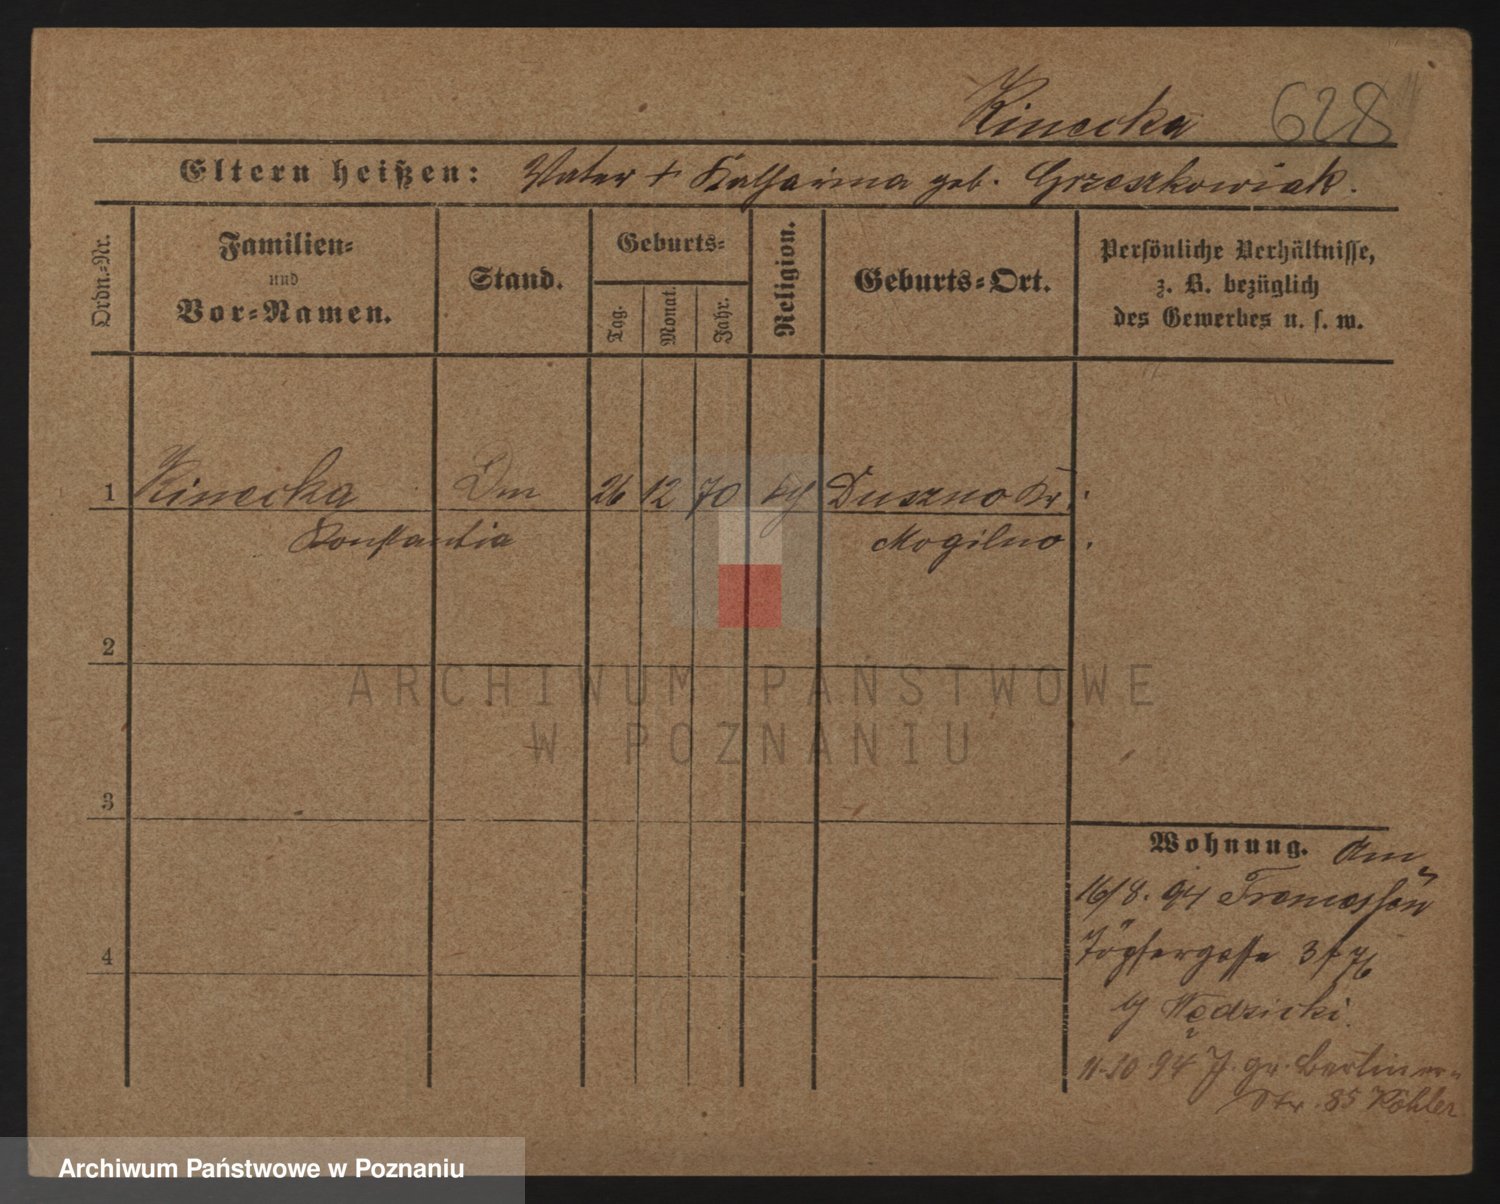 Kinecka 628
Eltern heißen: Vater + Katharina geb. Grzeszkowiak.
Ordn.-Nr.
Familien-
und
Vor-Namen.
Stand.
Geburts-
Tag.
Monat.
Jahr.
Religion.
Geburts-Ort.
Persönliche Verhältnisse,
z. B. bezüglich
des Gewerbes u. s. w.
1 Kinecka Dm 26 12 70 Duszno Kr.
Konstantia Mogilno.
2
3
4
Wohnung. Am
16/8. 94 Tremessen
Töpfergasse 3
Wędzicki.
11.10.94 J. gr. Berliner-
Str. 85 Köhler
ARCHIWUM PAŃSTWOWE
W POZNANIU
Archiwum Państwowe w Poznaniu